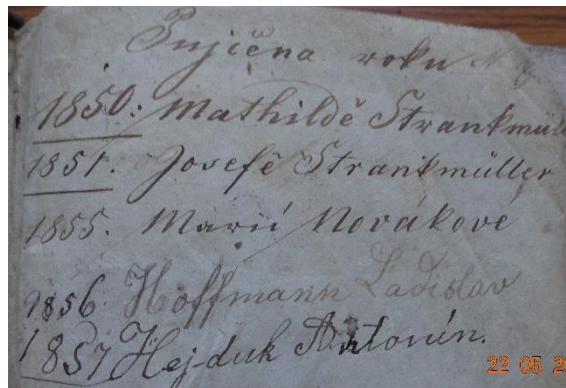 Pujčena roku
1850: Mathildě Strankmül
1851. Josefě Strankmüller
1855. Marii Novákové
1856 Hoffmann Ladislav
1857 Hej-duk Antonín.
22 05 2